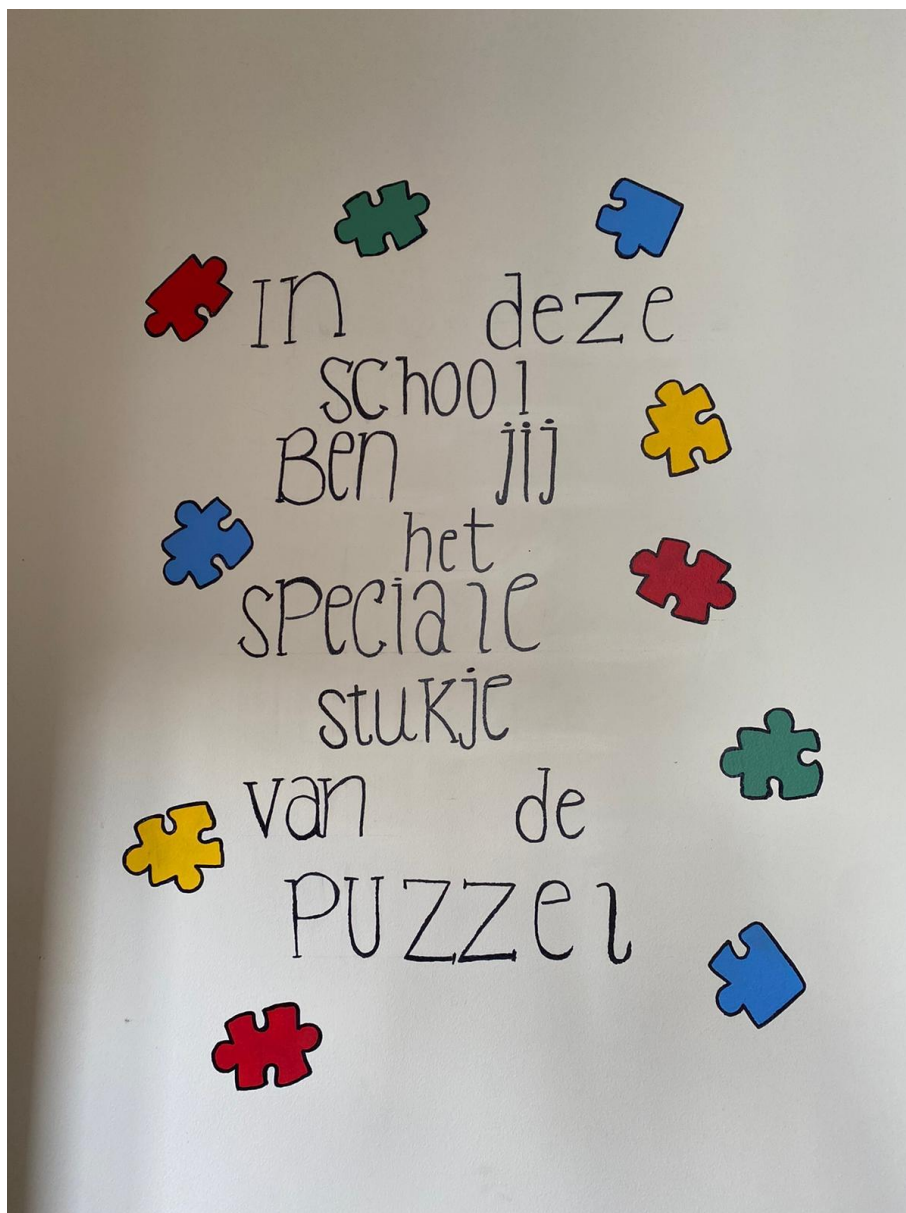 In deze
school
Ben jij
het
speciale
stukje
van de
PUZZel